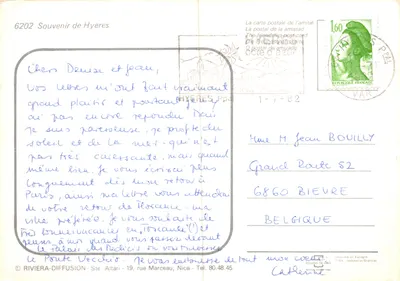 6202 Souvenir de Hyères
La carte postale de l'amitié
1,60
Chers Denise et Jean,
Vos lettres m'ont fait vraiment
grand plaisir et pourtant je n'y
ai pas encore répondu. Mais
je suis paresseuse, je profite du
soleil et de la mer qui n'est
pas très caressante, mais quand
même bien. Je vous écrirai plus
longuement dès mon retour à
Paris, aussi ma lettre vous attendra
de votre retour de Florence, ma
ville préférée. Je vous souhaite de
très bonnes vacances en Toscane (!) et
pensez à moi quand vous passerez devant
le Palais ou
le Ponte Vecchio. Je vous embrasse de tout mon cœur
Catherine
Mme M. Jean BOUILLY
Grand Route 82
6860 BIEVRE
BELGIQUE
VAR
© RIVIERA-DIFFUSION - 19, rue Marceau, Nice - Tél. 80.48.45